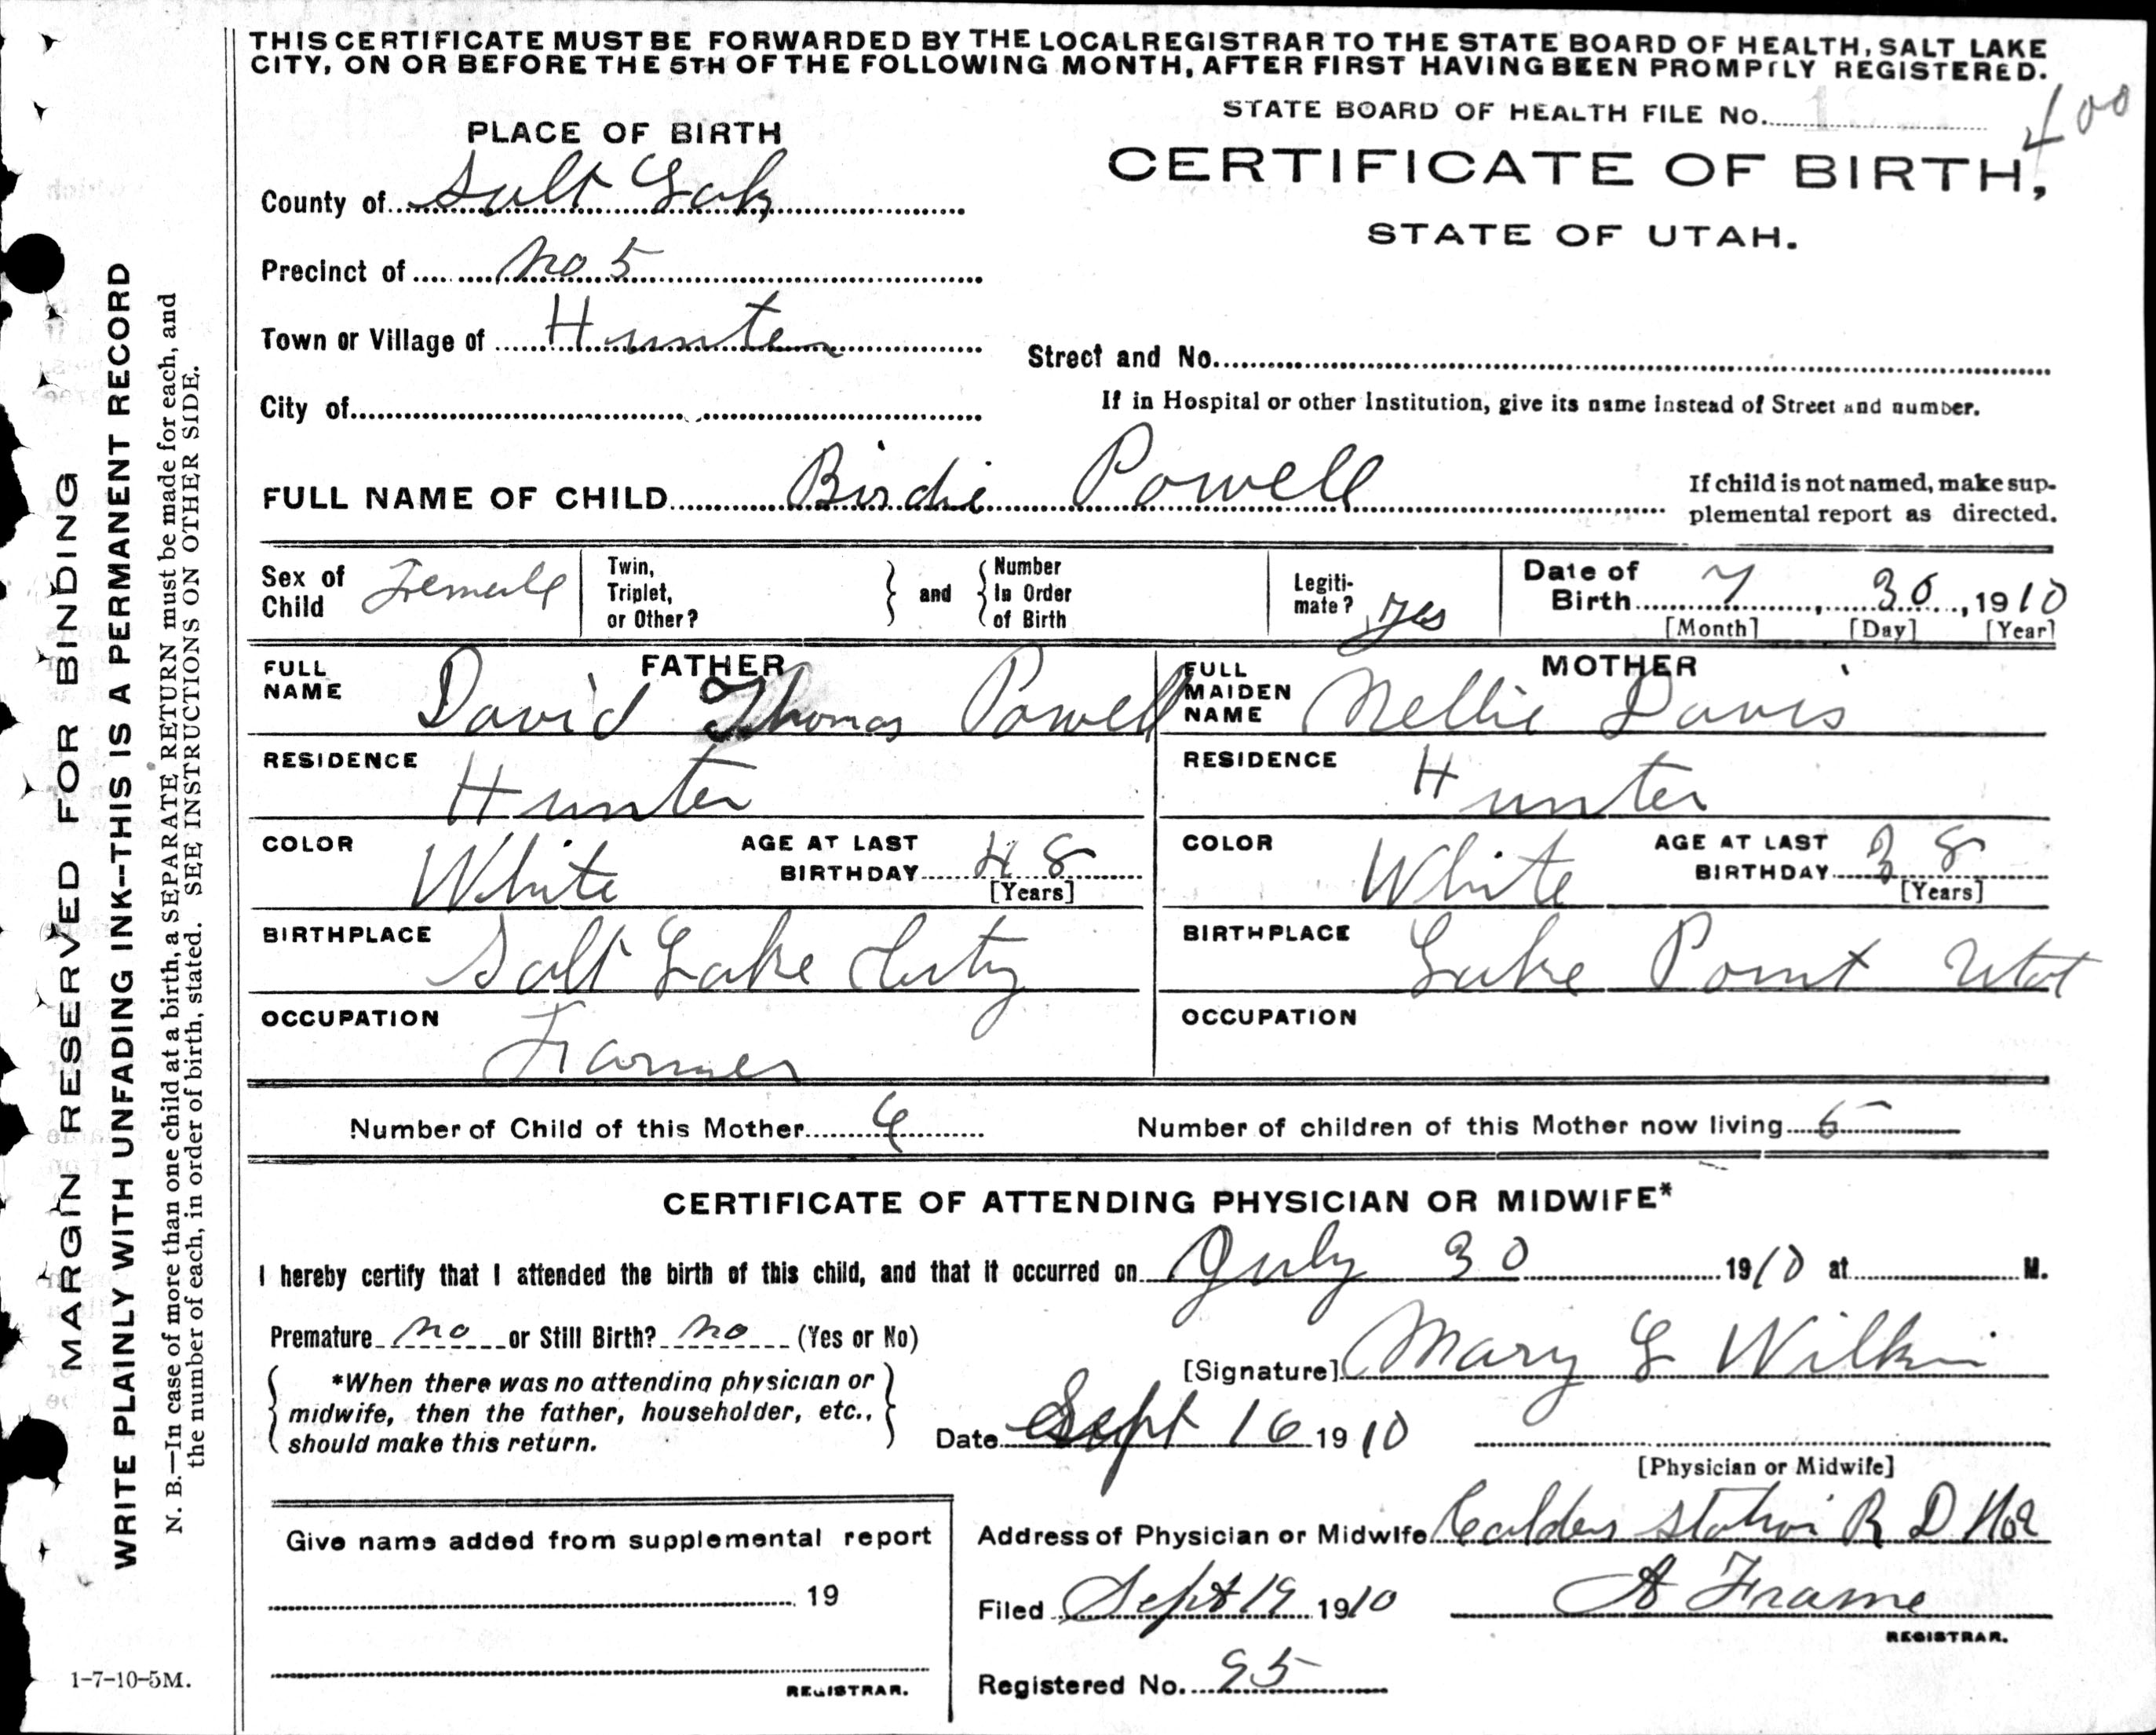 THIS CERTIFICATE MUST BE FORWARDED BY THE LOCAL REGISTRAR TO THE STATE BOARD OF HEALTH, SALT LAKE
CITY, ON OR BEFORE THE 5TH OF THE FOLLOWING MONTH, AFTER FIRST HAVING BEEN PROMPTLY REGISTERED.
STATE BOARD OF HEALTH FILE No. 400
PLACE OF BIRTH
CERTIFICATE OF BIRTH,
STATE OF UTAH.
County of Salt Lake
Precinct of No 5
Town or Village of Hunter
Street and No.
City of
If in Hospital or other Institution, give its name instead of Street and number.
FULL NAME OF CHILD Birdie Powell
If child is not named, make sup-
plemental report as directed.
Sex of Child Female
Twin, Triplet, or Other? and Number In Order of Birth
Legiti-mate? yes
Date of Birth 7, 30, 1910
[Month] [Day] [Year]
FATHER
FULL NAME David Thomas Powell
MOTHER
FULL MAIDEN NAME Nellie Davis
RESIDENCE Hunter
RESIDENCE Hunter
COLOR White AGE AT LAST BIRTHDAY 48 [Years]
COLOR White AGE AT LAST BIRTHDAY 38 [Years]
BIRTHPLACE Salt Lake City
BIRTHPLACE Lake Point Utah
OCCUPATION Farmer
OCCUPATION
Number of Child of this Mother 6 Number of children of this Mother now living 5
CERTIFICATE OF ATTENDING PHYSICIAN OR MIDWIFE*
I hereby certify that I attended the birth of this child, and that it occurred on July 30 1910 at M.
Premature no or Still Birth? no (Yes or No)
*When there was no attending physician or
midwife, then the father, householder, etc.,
should make this return.
[Signature] Mary G Wilkin
Date Sept 16 1910
[Physician or Midwife]
Give name added from supplemental report
19
REGISTRAR.
Address of Physician or Midwife Calders Station R D No 2
Filed Sept 19 1910 A Frame
REGISTRAR.
Registered No. 95
MARGIN RESERVED FOR BINDING
WRITE PLAINLY WITH UNFADING INK--THIS IS A PERMANENT RECORD
N. B.—In case of more than one child at a birth, a SEPARATE RETURN must be made for each, and
the number of each, in order of birth, stated. SEE INSTRUCTIONS ON OTHER SIDE.
1-7-10-5M.